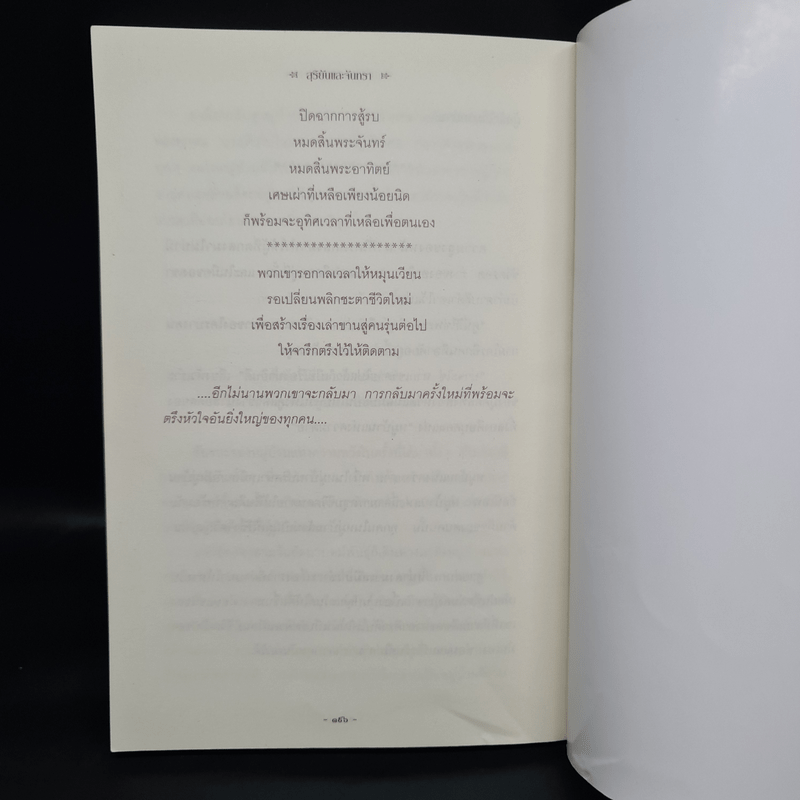 สุริยันและจันทรา
ปิดฉากการสู้รบ
หมดสิ้นพระจันทร์
หมดสิ้นพระอาทิตย์
เศษเผ่าที่เหลือเพียงน้อยนิด
ก็พร้อมจะอุทิศเวลาที่เหลือเพื่อตนเอง
********************
พวกเขารอกาลเวลาให้หมุนเวียน
รอเปลี่ยนพลิกชะตาชีวิตใหม่
เพื่อสร้างเรื่องเล่าขานสู่คนรุ่นต่อไป
ให้จารึกตรึงไว้ให้ติดตาม
....อีกไม่นานพวกเขาจะกลับมา การกลับมาครั้งใหม่ที่พร้อมจะ
ตรึงหัวใจอันยิ่งใหญ่ของทุกคน....
- ๑๕๖ -